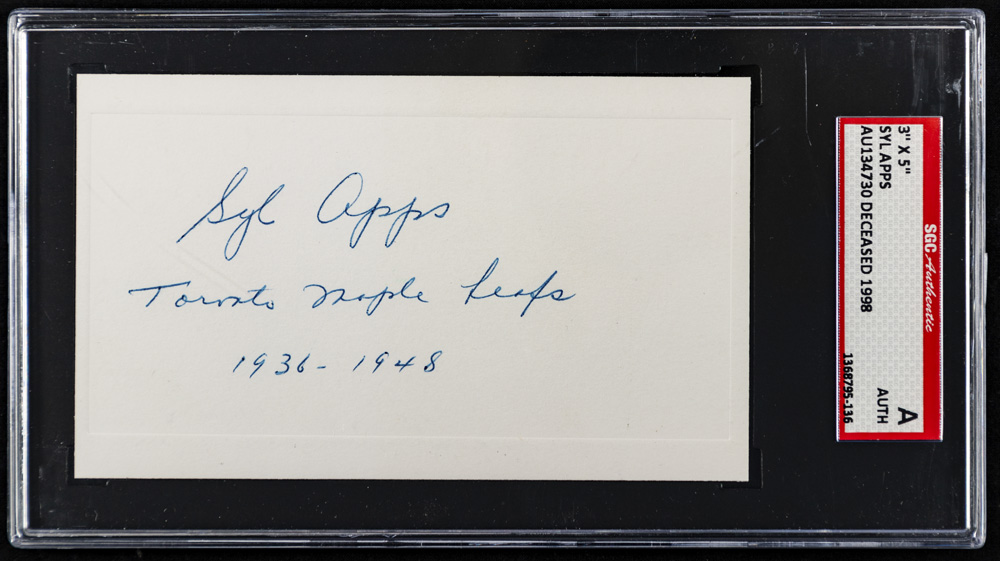 Syl Apps
Toronto Maple Leafs
1936-1948
SGC Authentic
3" X 5"
SYL APPS
AU134730 DECEASED 1998
A
AUTH
1368795-136